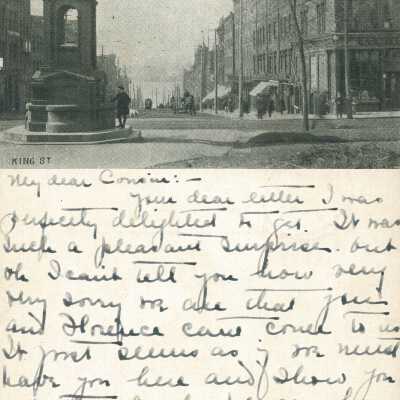 KING ST.
My dear Cousin:-
Your dear letter I was
perfectly delighted to get. It was
such a pleasant surprise. but
oh I can't tell you how very
very sorry we are that you
and Florence cant come to us
It just seems as if we must
have you here and show you